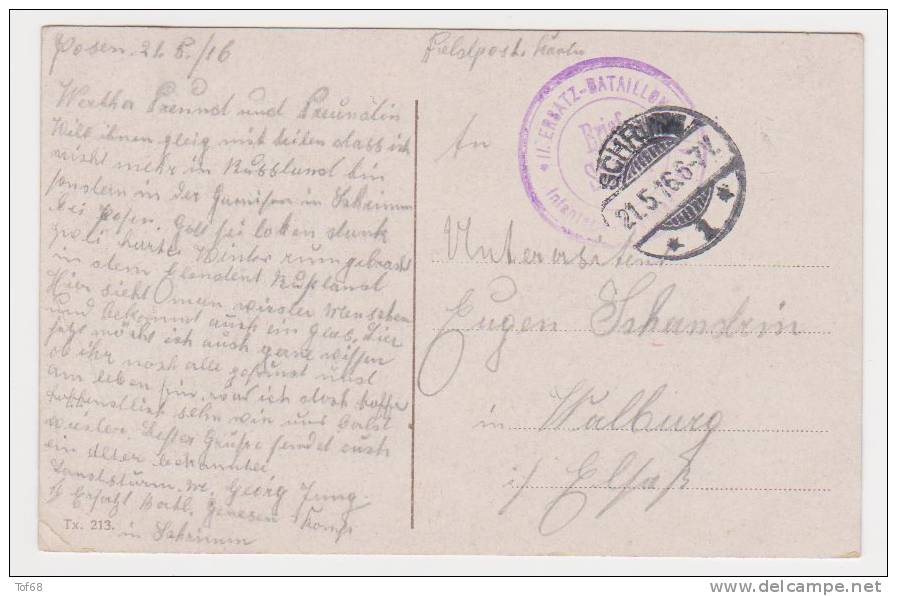 Posen. 21. 5./16
Feldpost Karte
Werther Freund und Freundin
Will ihnen gleig mit teilen dass ich
nicht mehr in Russland bin
sondern in der Garnison in Schrimm
bei Posen. Gott sei loben dank
zwei harte Winter rumgebracht
in dem elendent Rußland
Hier sieht Oman wieder Menschen
und bekommt auch ein Glas. Bier
jetzt möcht ich auch gerne wissen
ob ihr noch alle gesund und
am leben sin, was ich doch hoffe
hoffendlich sehn wir uns balt
wieder. Besten Grüße sendet euch
ein alter bekannter
Landsturm. M. Georg Jung.
II Ersatz Batl. genesen Komp
in Schrimm
Tx. 213.
* II. ERSATZ-BATAILLON
Brief
Infanter
SCHRIMM
21.5.16.6-7V.
* 1 *
An
Eugen Schandrin
in Walburg
i/ Elsaß
Tof68
www.delcampe.net